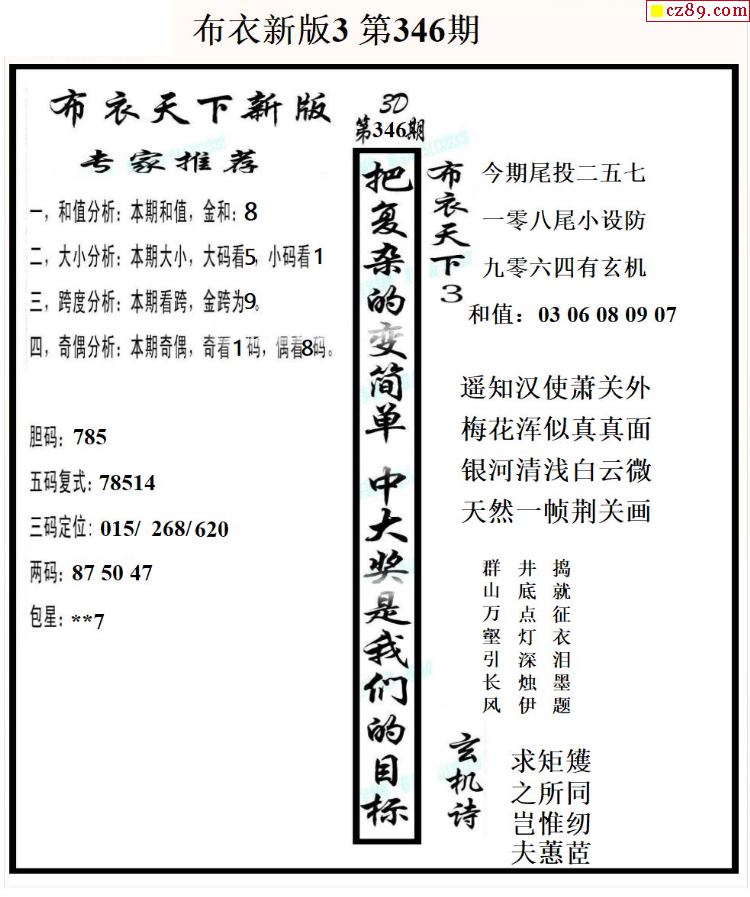 cz89.com
布衣新版3 第346期
布衣天下新版
专家推荐
一，和值分析：本期和值，金和：8
二，大小分析：本期大小，大码看5，小码看1
三，跨度分析：本期看跨，金跨为9。
四，奇偶分析：本期奇偶，奇看1码，偶看8码。
胆码：785
五码复式：78514
三码定位：015/ 268/620
两码：87 50 47
包星：**7
3D
第346期
把复杂的变简单 中大奖是我们的目标
布衣天下3
今期尾投二五七
一零八尾小设防
九零六四有玄机
和值：03 06 08 09 07
遥知汉使萧关外
梅花浑似真真面
银河清浅白云微
天然一帧荆关画
群山万壑引长风
井底点灯深烛伊
捣就征衣泪墨题
玄机诗
求矩矱
之所同
岂惟纫
夫蕙茝